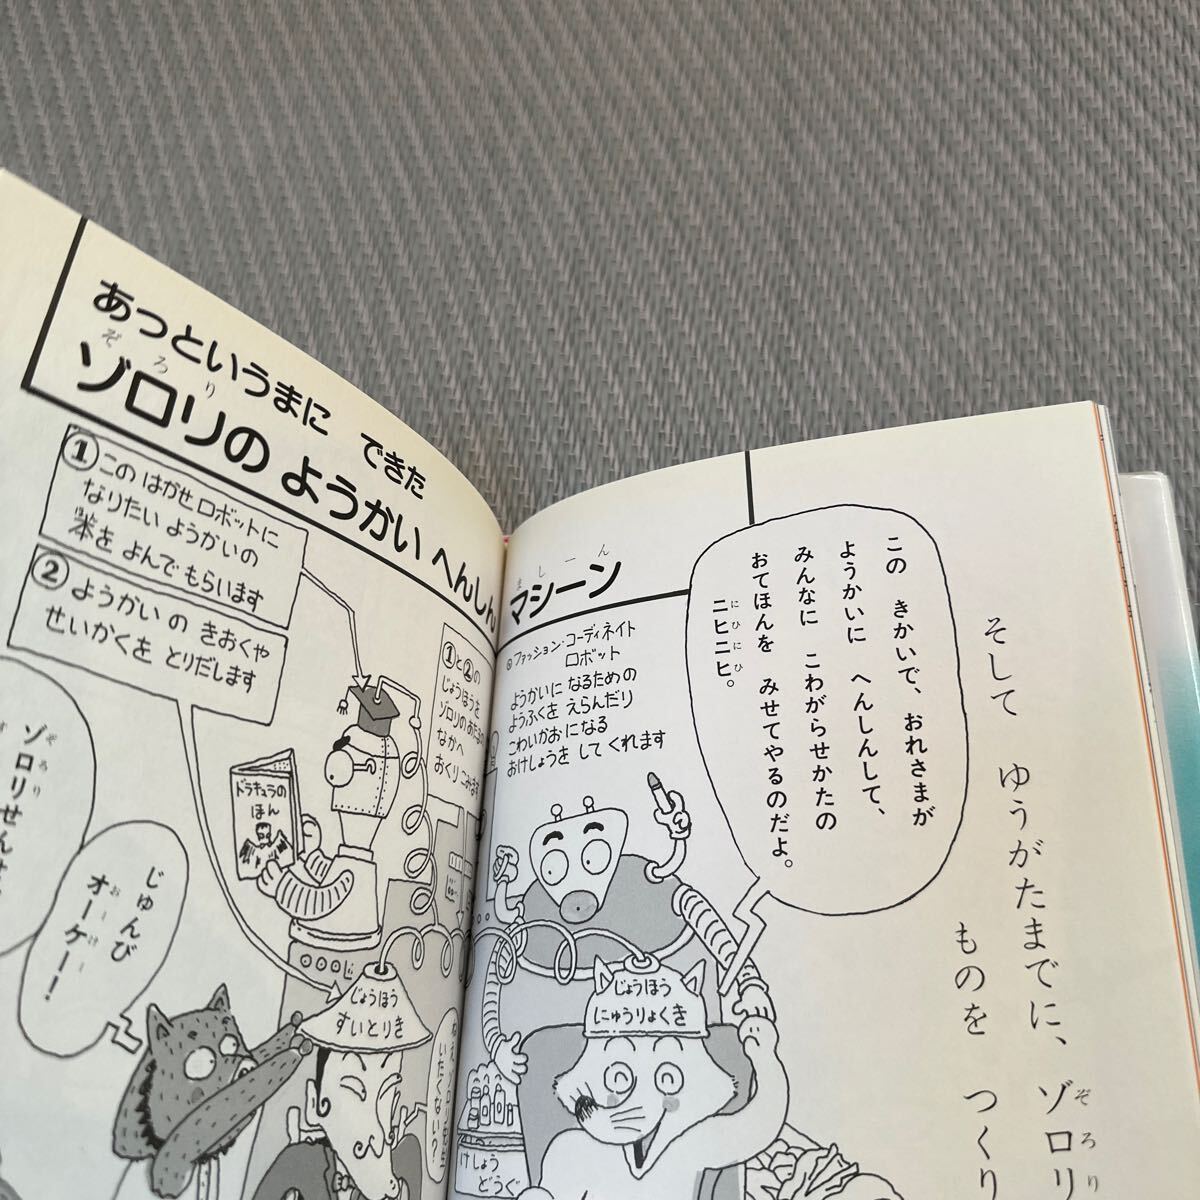 そして ゆうがたまでに、ゾロリ
ぞろり
ものを つくり
この きかいで、おれさまが
ようかいに へんしんして、
みんなに こわがらせかたの
おてほんを みせてやるのだよ。
ニヒニヒ。
にひにひ
あっというまに できた
ゾロリの ようかい へんしん マシーン
ぞろり
ましーん
①この はかせ ロボットに
なりたい ようかいの
本を よんで もらいます
②ようかい の きおくや
せいかくを とりだします
①と②の
じょうほうを
ゾロリのあたまの
なかへ
おくりこみます
ファッション・コーディネイト
ロボット
ようかいに なるための
ようふくを えらんだり
こわいかお になる
おけしょうを して くれます
ドラキュラの
ほん
じょうほう
にゅうりょくき
じょうほう
すいとりき
けしょう
どうぐ
ねえ、
いたくない?
じゅんび
オーケー!
おーけー
ゾロリせん
ぞろり